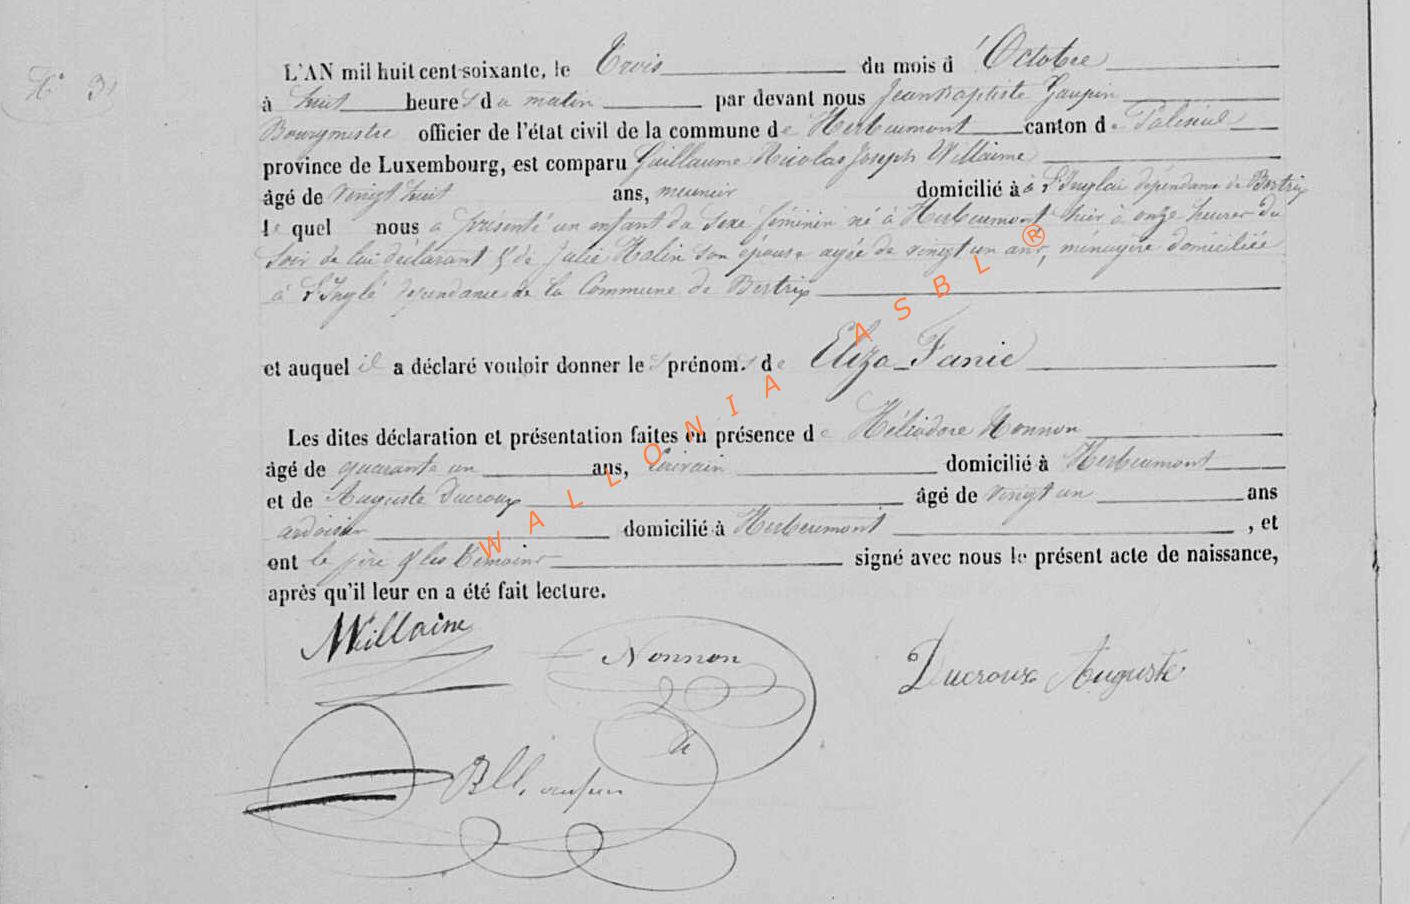 N° 31
L'AN mil huit cent soixante, le Trois du mois d'Octobre
à huit heures du matin par devant nous Jean Baptiste Gaupin
Bourgmestre officier de l'état civil de la commune de Herbeumont canton de Paliseul
province de Luxembourg, est comparu Guillaume Nicolas Joseph Willaime
âgé de vingt huit ans, meunier domicilié à à dépendance de Bertrix
lequel nous a présenté un enfant du sexe féminin né à Herbeumont hier à onze heures du
soir de lui déclarant & de Julie Halin son épouse agée de vingt un ans, ménagère domiciliée
à L'Inglé dépendance de la Commune de Bertrix
et auquel il a déclaré vouloir donner les prénoms de Eliza Fanie
Les dites déclaration et présentation faites en présence de Héliodore Nonnon
âgé de quarante un ans, Ecrivain domicilié à Herbeumont
et de Auguste Ducroux âgé de vingt un ans
ardoisier domicilié à Herbeumont , et
ont le père & les témoins signé avec nous le présent acte de naissance,
après qu'il leur en a été fait lecture.
Willaime Nonnon Ducroux Auguste
WALLONIA ASBL ®